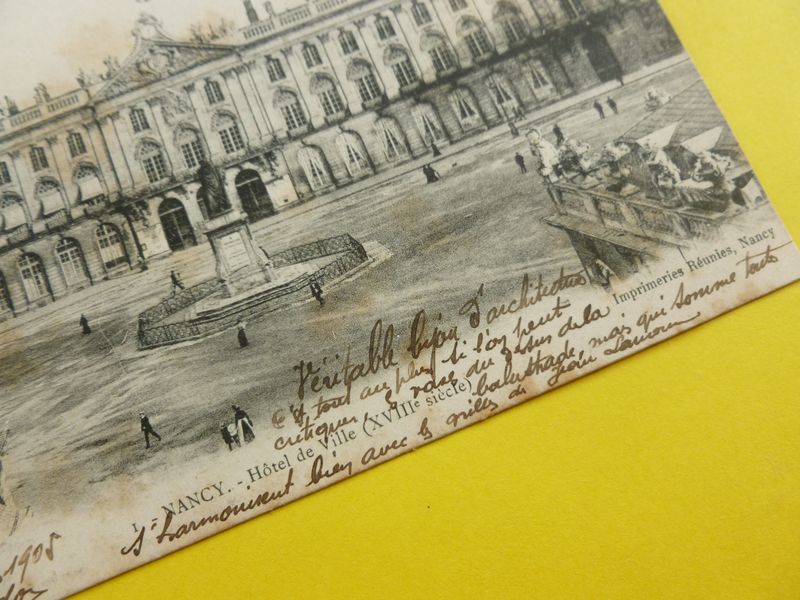 Véritable bijou d'architecture
C'est tout au plus si l'on peut
critiquer le vase du dessus de la
balustrade mais qui somme toute
s'harmonisent bien avec les grilles de Jean Lamour
1. - NANCY. - Hôtel de Ville (XVIIIe siècle)
Imprimeries Réunies, Nancy
1905